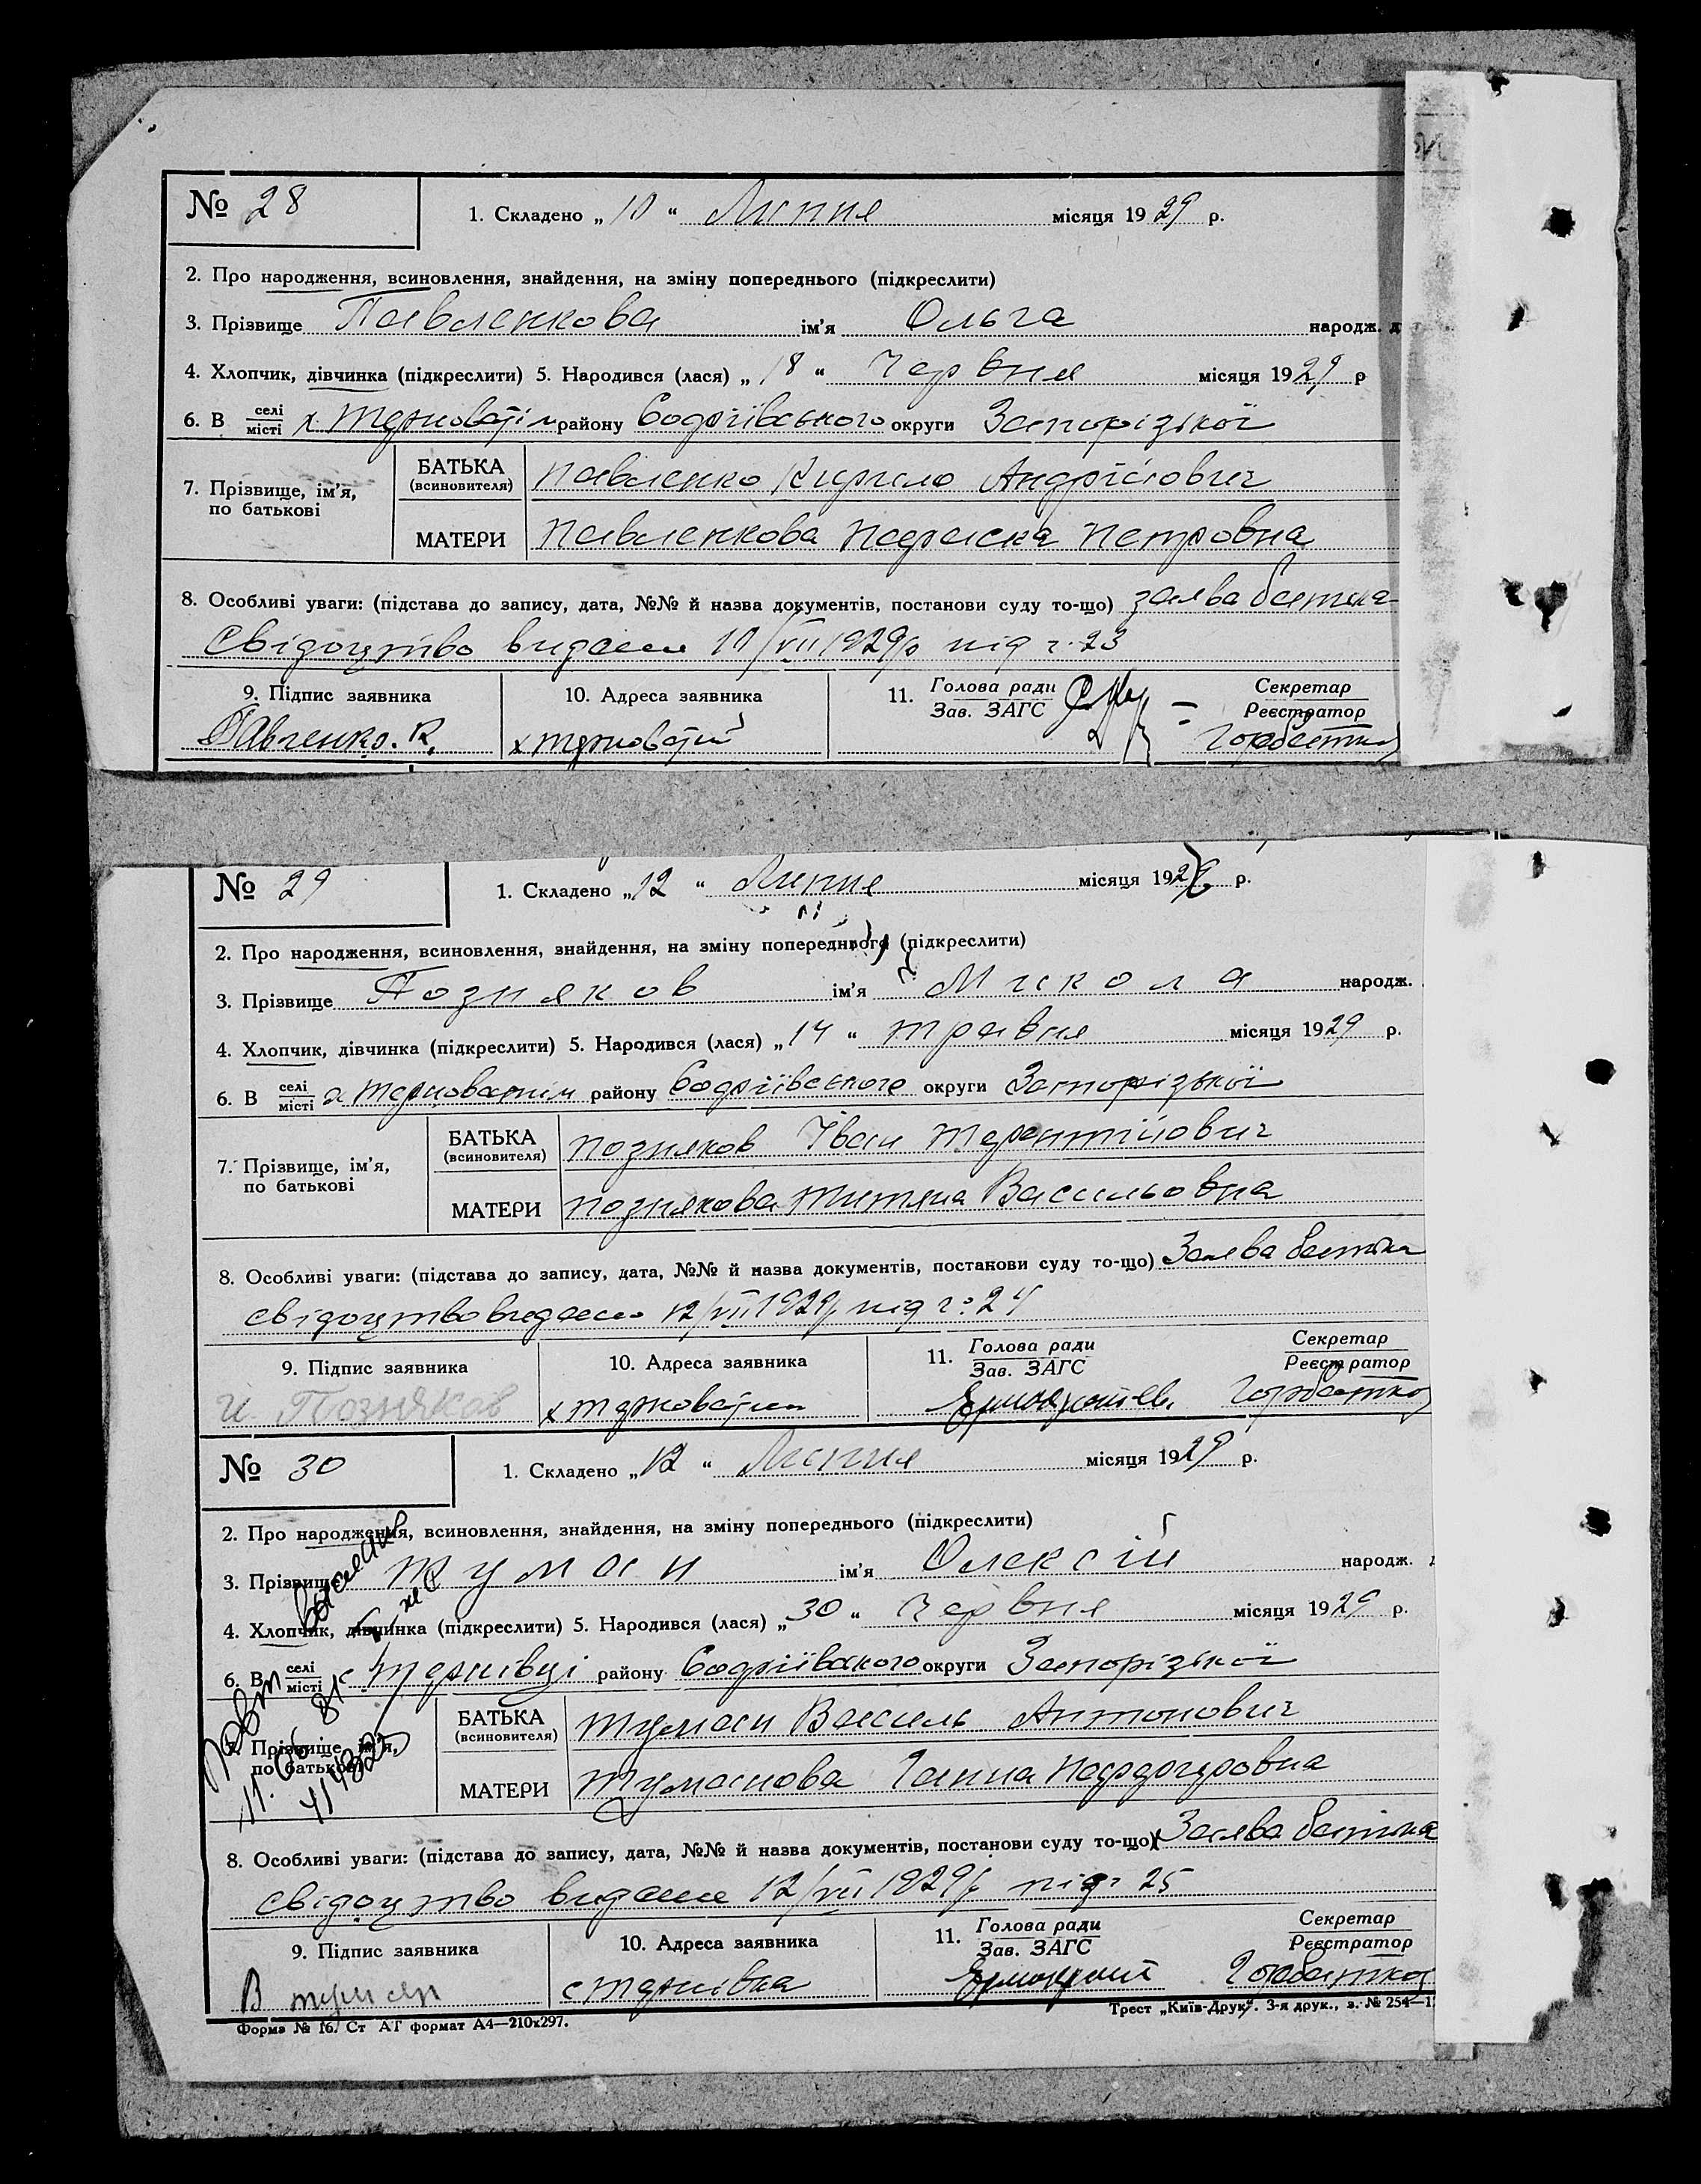 № 28
1. Складено „ 10 “ Липня місяця 19 29 р.
2. Про народження, всиновлення, знайдення, на зміну попереднього (підкреслити)
3. Прізвище Павленкова ім’я Ольга народж.
4. Хлопчик, дівчинка (підкреслити) 5. Народився (лася) „ 18 “ Червня місяця 19 29 р
6. В селі місті х. Терноватім району Софіївського округи Запорізької
7. Прізвище, ім’я, по батькові
БАТЬКА (всиновителя) Павленко Кирило Андрійович
МАТЕРИ Павленкова Параска Петровна
8. Особливі уваги: (підстава до запису, дата, №№ й назва документів, постанови суду то-що) заява батька
Свідоцтво видане 10/VII 1929р під ч. 23
9. Підпис заявника 10. Адреса заявника 11. Голова ради Зав. ЗАГС Секретар Реєстратор
Павленко. К. х Терноватий Горбатко
№ 29
1. Складено „ 12 “ Липня місяця 19 29 р.
2. Про народження, всиновлення, знайдення, на зміну попереднього (підкреслити)
3. Прізвище Позняков ім’я Микола народж.
4. Хлопчик, дівчинка (підкреслити) 5. Народився (лася) „ 14 “ травня місяця 19 29 р.
6. В селі місті х Терноватім району Софіївського округи Запорізької
7. Прізвище, ім’я, по батькові
БАТЬКА (всиновителя) Позняков Іван Терентійович
МАТЕРИ Познякова Титяна Васильовна
8. Особливі уваги: (підстава до запису, дата, №№ й назва документів, постанови суду то-що) Заява батька
Свідоцтво видано 12/VII 1929р під ч. 24
9. Підпис заявника 10. Адреса заявника 11. Голова ради Зав. ЗАГС Секретар Реєстратор
И. Позняков х Терноватим Горбатко
№ 30
1. Складено „ 12 “ Липня місяця 19 29 р.
2. Про народження, всиновлення, знайдення, на зміну попереднього (підкреслити)
3. Прізвище Туман ім’я Олексій народж.
4. Хлопчик, дівчинка (підкреслити) 5. Народився (лася) „ 30 “ Червня місяця 19 29 р.
6. В селі місті с Тернівці району Софіївського округи Запорізької
7. Прізвище, ім’я, по батькові
БАТЬКА (всиновителя) Туман Василь Антонович
МАТЕРИ Туманова Ганна
8. Особливі уваги: (підстава до запису, дата, №№ й назва документів, постанови суду то-що) Заява батька
свідоцтво видане 12/VII 1929р під ч 25
9. Підпис заявника 10. Адреса заявника 11. Голова ради Зав. ЗАГС Секретар Реєстратор
В туман с Тернівка Горбатко
Форма № 16. Ст АГ формат А4—210х297.
Трест „Київ-Друк“. 3-я друк., з. № 254—